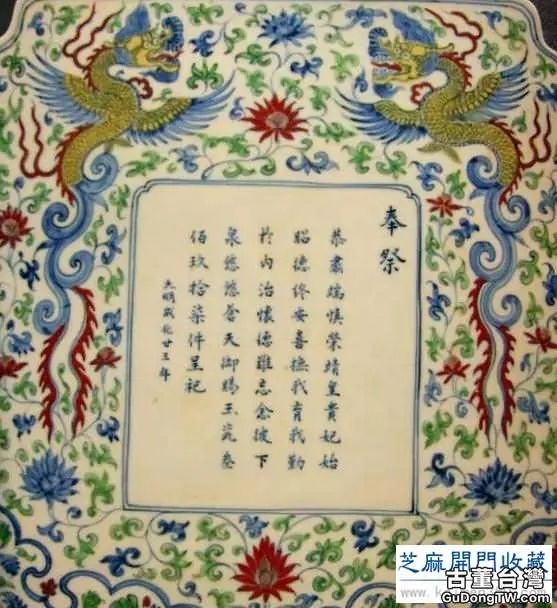 奉祭
恭肅端慎榮靖皇貴妃始
昭德终安喜撫我育我勤
於内治懷德難忘念彼下
泉悠悠蒼天御賜玉瓷叁
佰玖拾柒件呈祀
大明成化廿三年
芝麻開門收藏
古董台灣
GuDongTW.com